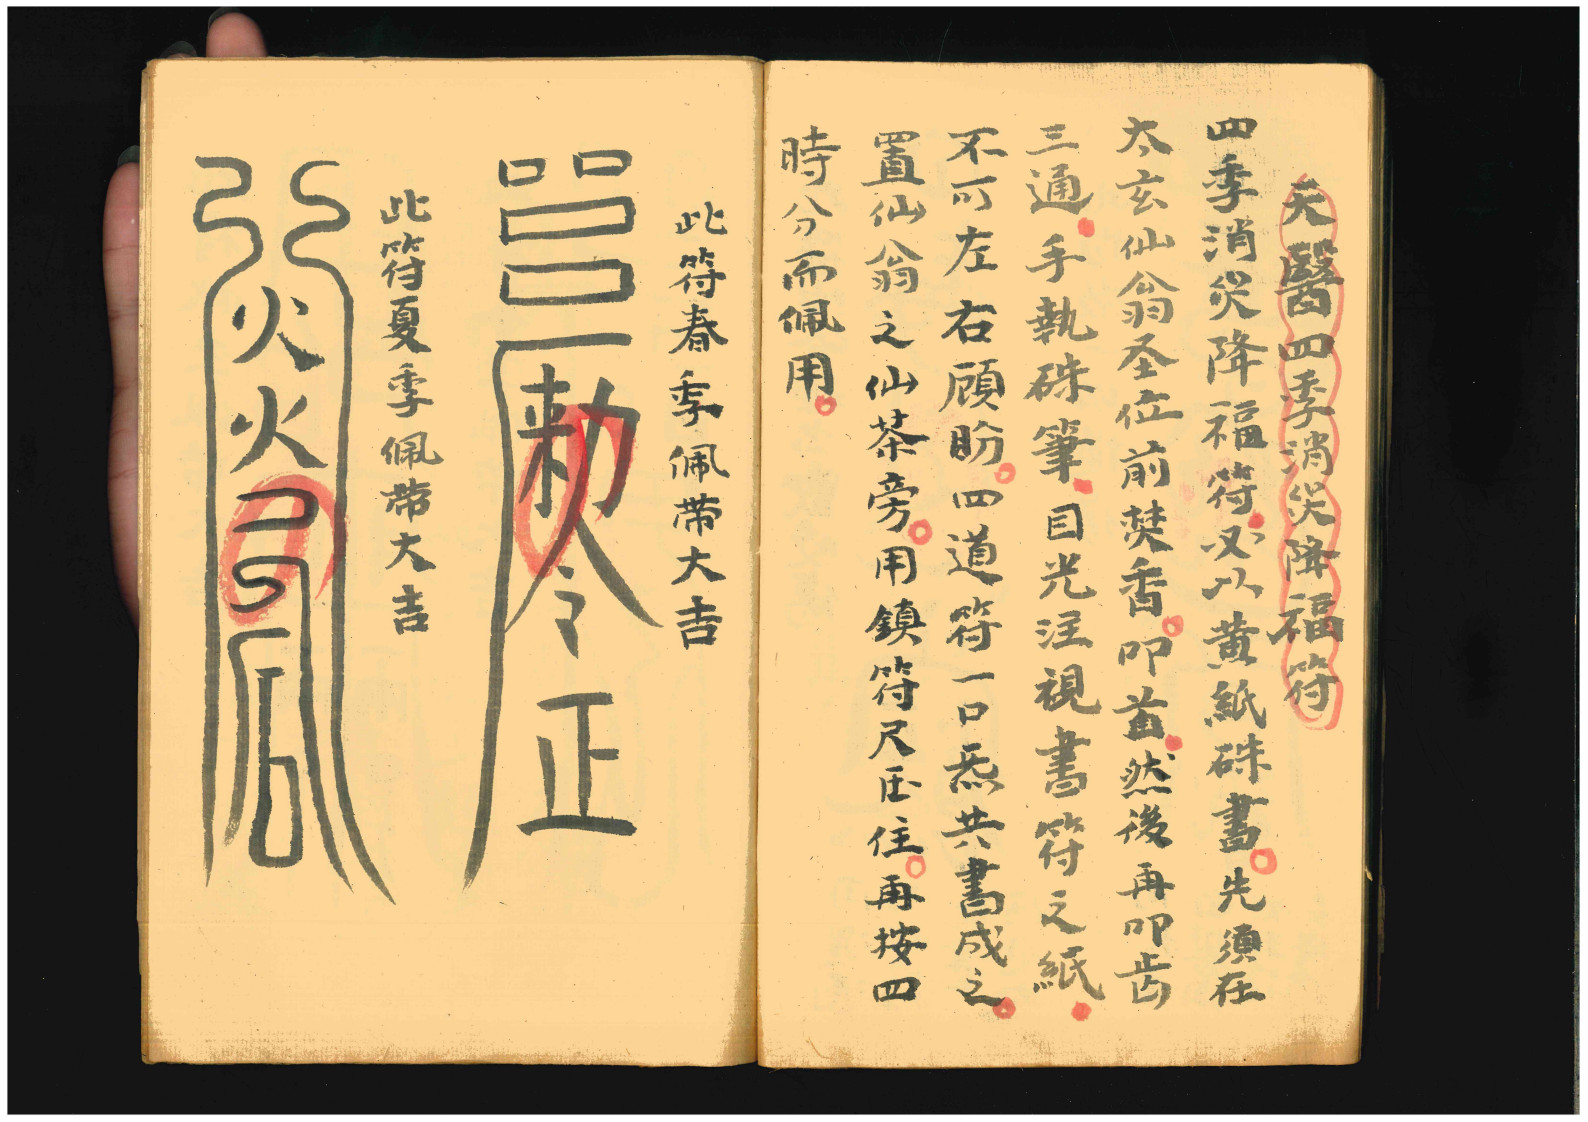 天醫四季消災降福符
四季消災降福符必以黃紙硃書先須在
太玄仙翁圣位前焚香叩首然後再叩齿
三通手執硃筆目光注視書符之紙
不可左右顧盼四道符一口炁共書成之
置仙翁之仙茶旁用鎮符尺压住再按四
時分而佩用
此符春季佩带大吉
勅令正
此符夏季佩带大吉
火火